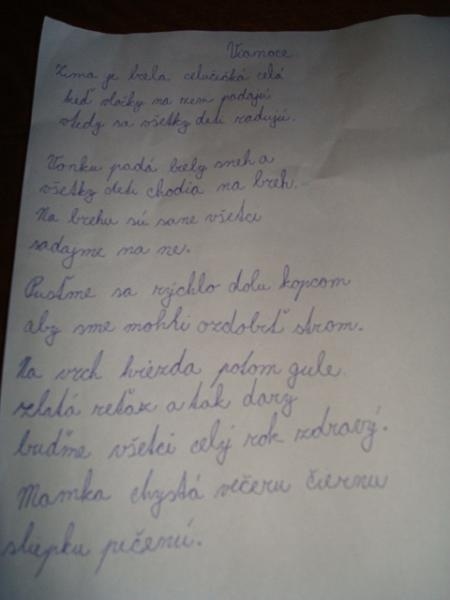 Vianoce
Zima je biela celučičká celá
keď vločky na zem padajú
vtedy sa všetky deti radujú.
Vonku padá biely sneh a
všetky deti chodia na breh.
Na brehu sú sane všetci
sadajme na ne.
Pusťme sa rýchlo dolu kopcom
aby sme mohli ozdobiť strom.
Na vrch hviezda potom gule
zlatá reťaz a tak dary
buďme všetci celý rok zdravý.
Mamka chystá večeru čiernu
sliepku pečenú.